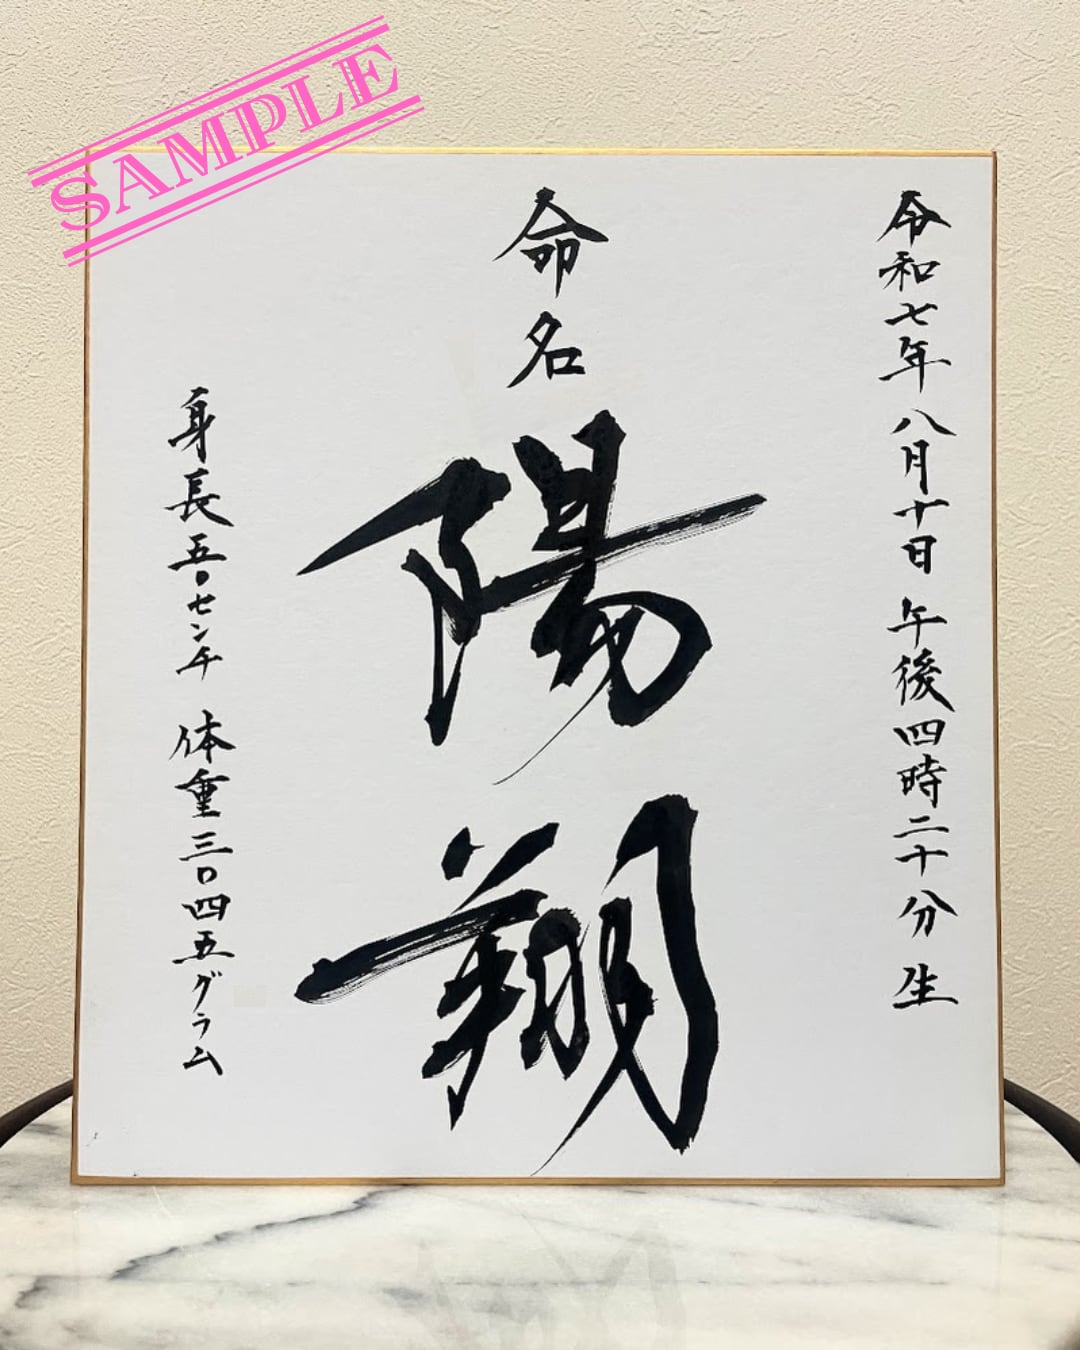 SAMPLE
令和七年八月十日 午後四時二十分 生
命名
陽翔
身長五〇センチ 体重三〇四五グラム